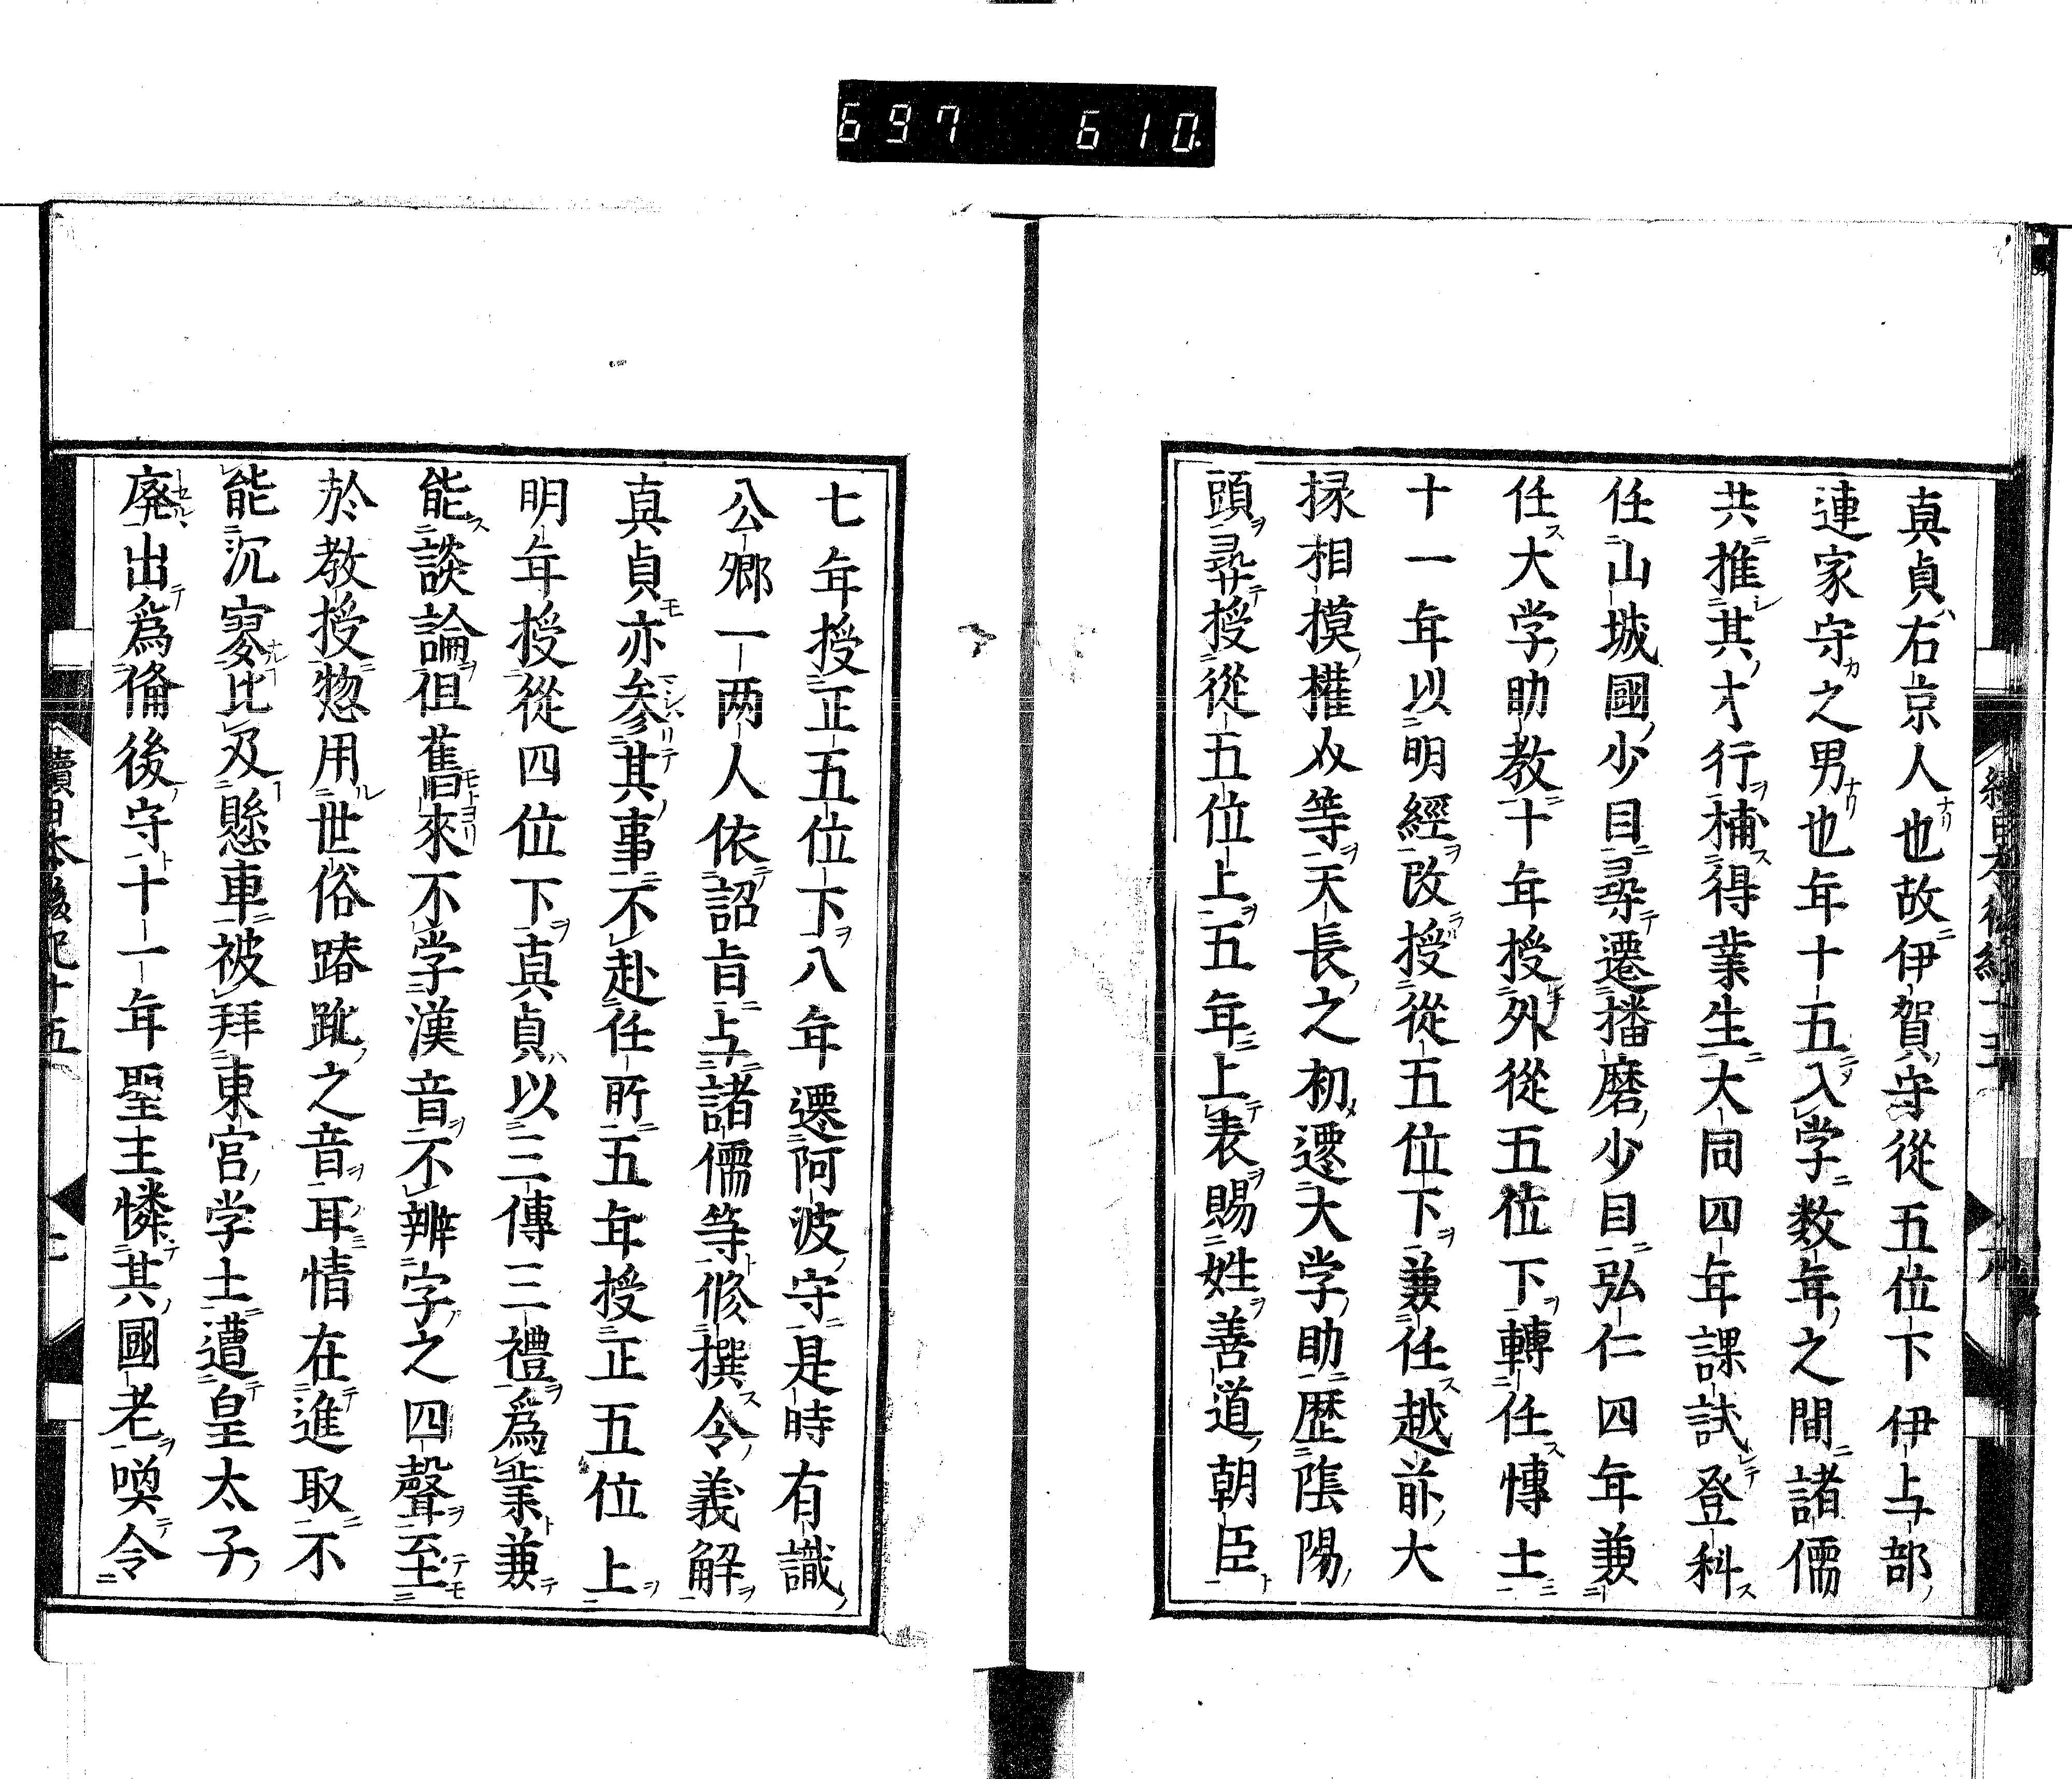 697 610
真貞右京人也故伊賀守從五位下伊与部
連家守之男也年十五入学数年之間諸儒
共推其才行補得業生大同四年課試登科
任山城國少目尋遷播磨少目弘仁四年兼
任大学助教十年授外從五位下轉任博士
十一年以明經改授從五位下兼任越前大
掾相摸權介等天長之初遷大学助歴陰陽
頭尋授從五位上五年上表賜姓善道朝臣
七年授正五位下八年遷阿波守是時有識
公卿一两人依詔旨与諸儒等修撰令義解
真貞亦参其事不赴任所五年授正五位上
明年授從四位下真貞以三傳三禮爲業兼
能談論但舊來不学漢音不辨字之四聲至
於教授惣用世俗踳䟽之音耳情在進取不
能沉寥比及懸車被拜東宮学士遭皇太子
廃出爲俻後守十一年聖主憐其國老喚令
續日本後紀十五